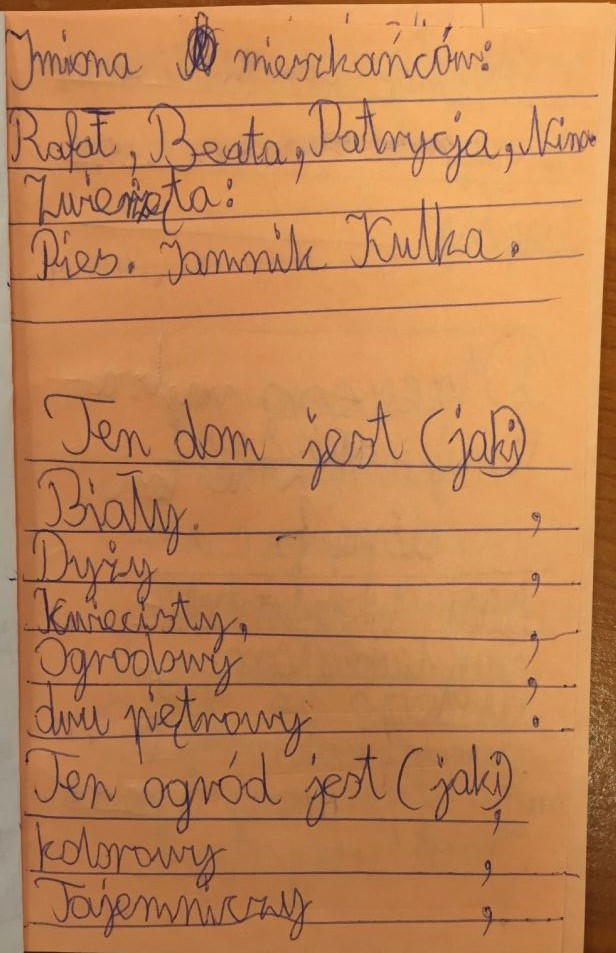 Imiona mieszkańców:
Rafał, Beata, Patrycja, Nina
Zwierzęta:
Pies. Jamnik Kulka.
Ten dom jest (jaki)
Biały. ,
Dyży ,
Kwiecisty, ,
Ogrodowy ,
dwu piętrowy .
Ten ogród jest (jaki)
kolorowy ,
Tajemniczy ,